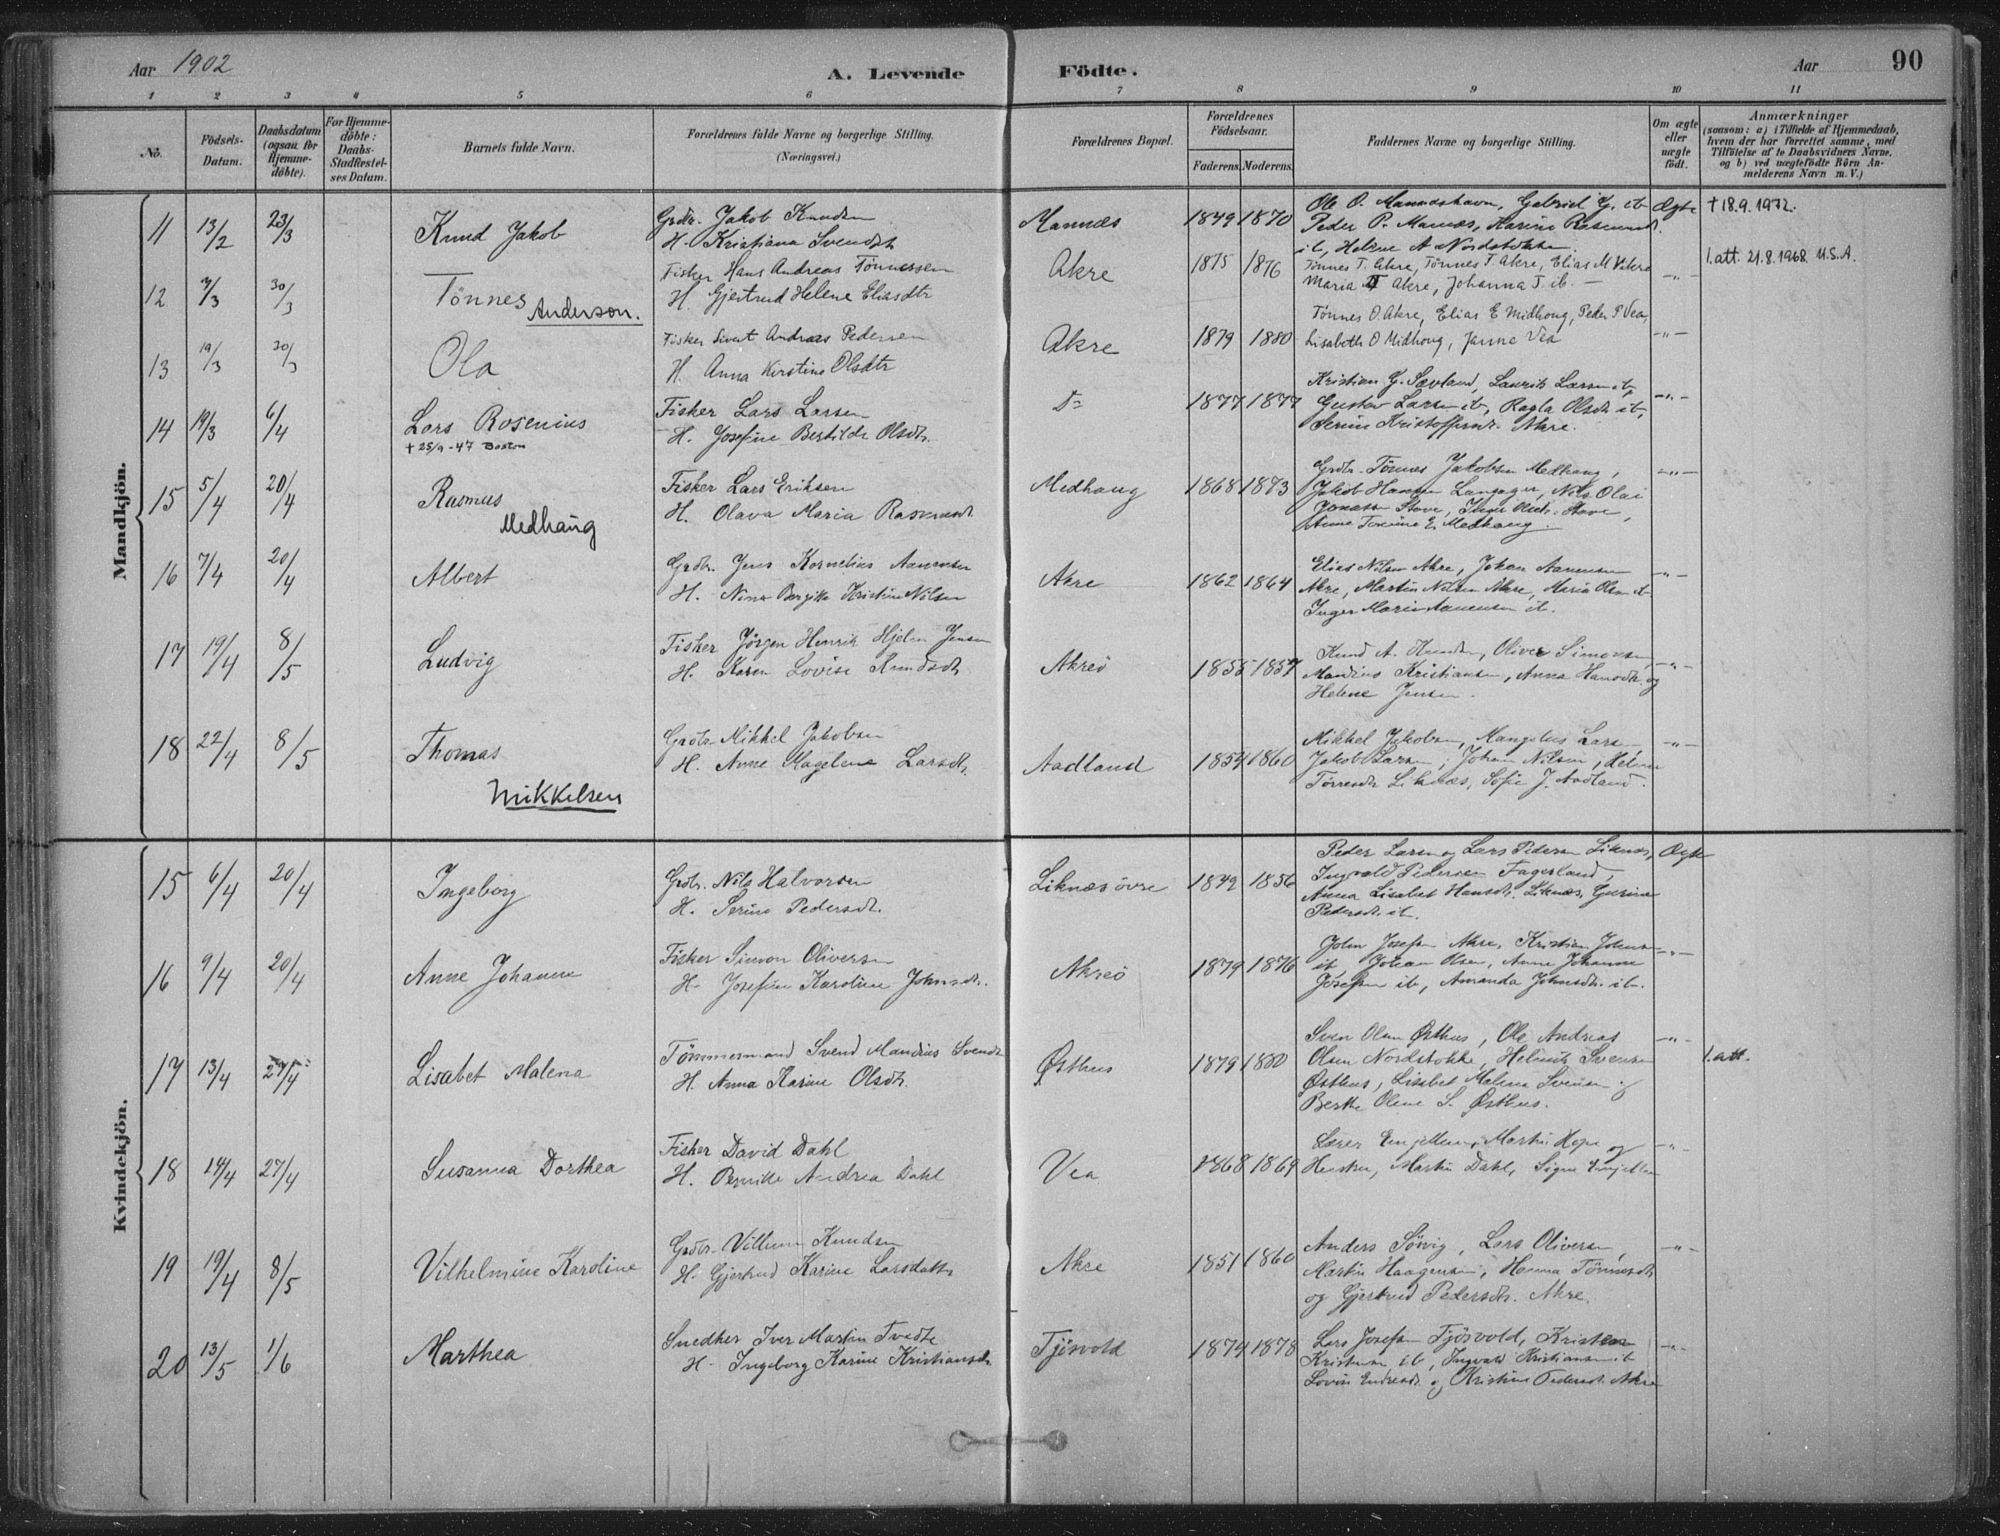 Aar 1902
A. Levende Födte.
Aar 90
1 2 3 4 5 6 7 8 9 10 11
No.
Födsels-Datum.
Daabsdatum (ogsaa for Hjemme-döbte).
For Hjemme-döbte: Daabs-Stadfæstel-ses Datum.
Barnets fulde Navn.
Forældrenes fulde Navne og borgerlige Stilling.
(Næringsvei.)
Forældrenes Bopæl.
Forældrenes Födselsaar.
Faderens. Moderens.
Faddernes Navne og borgerlige Stilling.
Om ægte eller uægte födt.
Anmærkninger
(saasom: a) i Tilfælde af Hjemmedaab, hvem der har forrettet samme, med Tilföielse af to Daabsvidners Navne, og b) ved uægtefödte Börn An-melderens Navn m. V.)
Mandkjön.
11 13/2 23/3 Knud Jakob
Grdbr. Jakob Knudsen
H. Kristiana Svendsdt
Mannæs 1849 1870
Ole O. Mannæshavn, Gabriel G. ib
Peder P. Mannæs, Marine Rasmusdt.
ib, Helene A Nordstokke.
Ægte † 18.9.1972.
12 /3 30/3 Tönnes Anderson.
Fisker Hans Andreas Tönnessen
H. Gjertrud Helene Eliasdtr
Akre 1875 1876
Tönnes T. Akre, Tönnes T. Akre, Elias M Akre
Maria T Akre, Johanna T ib. —
-"- 1.att. 21.8.1968 U.S.A.
13 19/3 30/3 Ola
Fisker Sivert Andreas Pedersen
H. Anna Kirstine Olsdtr
Akre 1879 1880
Tönnes O. Akre, Elias E Midhoug, Peder P Vea,
Lisabeth O Midhoug, Janne Vea
-"-
14 19/3 6/4 Lars Rosenius
† 25/9-47 Boston
Fisker Lars Larsen
H. Josefine Bertilde Olsdtr.
Do 1877 1877
Kristian G. Sævland, Laurits Larsen ib,
Gustav Larsen ib, Ragla Olsdt ib,
Serine Kristoffersdt. Akre.
-"-
15 5/4 20/4 Rasmus
Medhaug
Fisker Lars Eriksen
H. Olava Maria Rasmusdt.
Medhaug 1868 1873
Grdbr. Tönnes Jakobsen Medhaug,
Jakob Hansen Langager, Nils Olai
Jonassen Stove, Inger Olsdt. Stove,
Anne Tomine E. Medhaug.
-"-
16 7/4 20/4 Albert
Grdbr. Jens Kornelius Aanensen
H. Nina Bergitte Kristine Nilsen
Akre 1862 1864
Elias Nilsen Akre, Johan Aanensen
Akre, Martin Nilsen Akre, Maria Olsen ib
Inger Marie Aanensen ib.
-"-
17 19/4 8/5 Ludvig
Fisker Jörgen Henrik Hjelm Jensen
H. Karen Lovise Knudsdt.
Akreö 1855 1857
Knud A. Knudsen, Oliver Simonsen,
Mandius Kristiansen, Anna Hansdt. og
Helene Jensen.
-"-
18 22/4 8/5 Thomas
Mikkelsen
Grdbr. Mikkel Jakobsen
H. Anne Magelene Larsdt.
Aadland 1854 1860
Mikkel Jakobsen, Mangelus Larsen
Jakob Larsen, Johan Nilsen, Helene
Tönnesdt Liknæs, Sofie J. Aadland.
-"-
Kvindekjön.
15 6/4 20/4 Ingeborg
Grdbr. Nils Halvorsen
H. Serine Pedersdt.
Liknæs övre 1849 1856
Peder Larsen og Lars Pedersen Liknæs,
Ingvald Pedersen Fagerland,
Anna Lisabet Hansdt. Liknæs, Gurine
Pedersdt. ib.
Ægte
16 9/4 20/4 Anne Johanne
Fisker Simon Oliversen
H. Josefine Karoline Johnsdt.
Akreö 1879 1876
John Josefsen Akre, Kristian Johnsen
ib Johan Olsen, Anne Johanne
Josefsen ib, Amanda Johnsdt. ib.
-"-
17 13/4 27/4 Lisabet Malena
Tömmermand Svend Mandius Svendsen
H. Anna Karine Olsdt.
Østhus 1879 1880
Sven Olsen Østhus, Ole Andreas
Olsen Nordstokke, Helmik Svensen
Østhus, Lisabet Malena Svensen og
Berthe Oline S. Østhus.
-"- 1.att.
18 14/4 27/4 Susanna Dorthea
Fisker David Dahl
H. Pernille Andrea Dahl
Vea 1868 1869
Lærer Martin Hope og
Hustru, Martin Dahl, Signe
-"-
19 19/4 8/5 Vilhelmine Karoline
Grdbr. Villum Knudsen
H. Gjertrud Karine Larsdatter
Akre 1851 1860
Anders Sövig, Lars Oliversen,
Martin Haagensen, Hanna Tönnesdt.
og Gjertrud Pedersdt. Akre.
-"-
20 13/5 1/6 Marthea
Snedker Iver Martin Tvedte
H. Ingeborg Karine Kristiansdt.
Tjösvold 1874 1878
Lars Josefsen Tjösvold, Kristian
Kristensen ib, Ingvald Kristiansen ib
Lovise Endresdt og Kristine Pedersdt. Akre
-"-